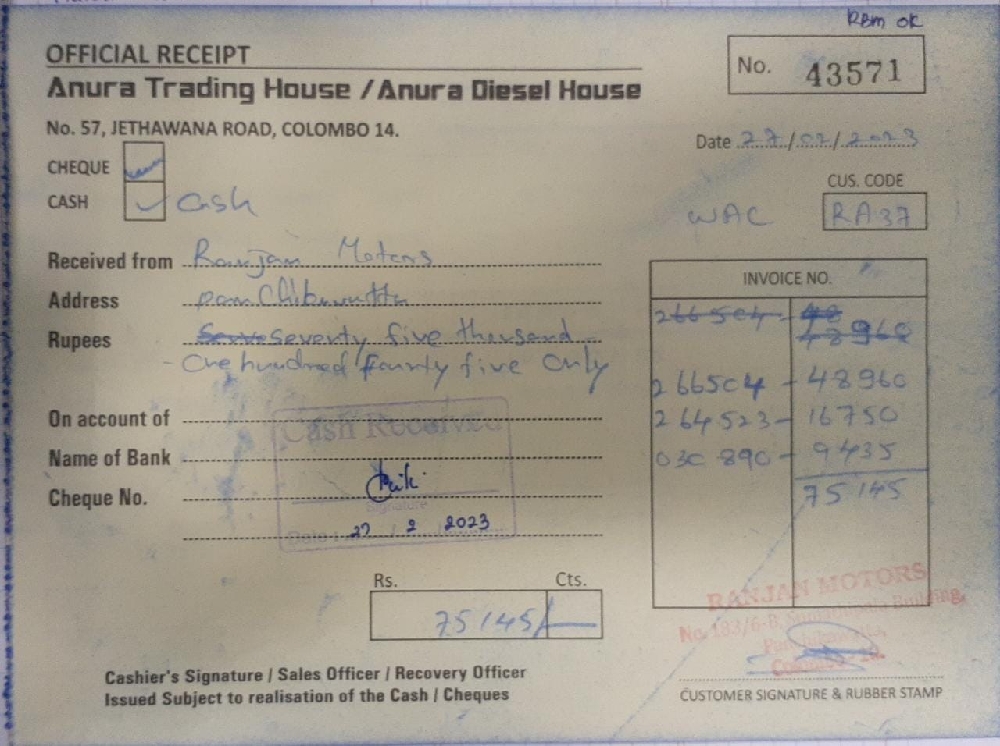 RBM OK
OFFICIAL RECEIPT
Anura Trading House / Anura Diesel House
No. 43571
No. 57, JETHAWANA ROAD, COLOMBO 14.
Date 27/02/2023
CHEQUE
CASH Cash
CUS. CODE
WAC RA37
Received from Ranjan Motors
Address
Rupees Seventy five thousand
- One hundred fourty five Only
INVOICE NO.
266504 - 48
48960
266504 - 48960
264523 - 16750
030890 - 9435
75145
On account of
Cash Received
Name of Bank
Cheque No.
Signature
Date 27 / 2 2023
Rs. Cts.
75145/
RANJAN MOTORS
No. 183/6-B, Building,
Cashier's Signature / Sales Officer / Recovery Officer
Issued Subject to realisation of the Cash / Cheques
CUSTOMER SIGNATURE & RUBBER STAMP